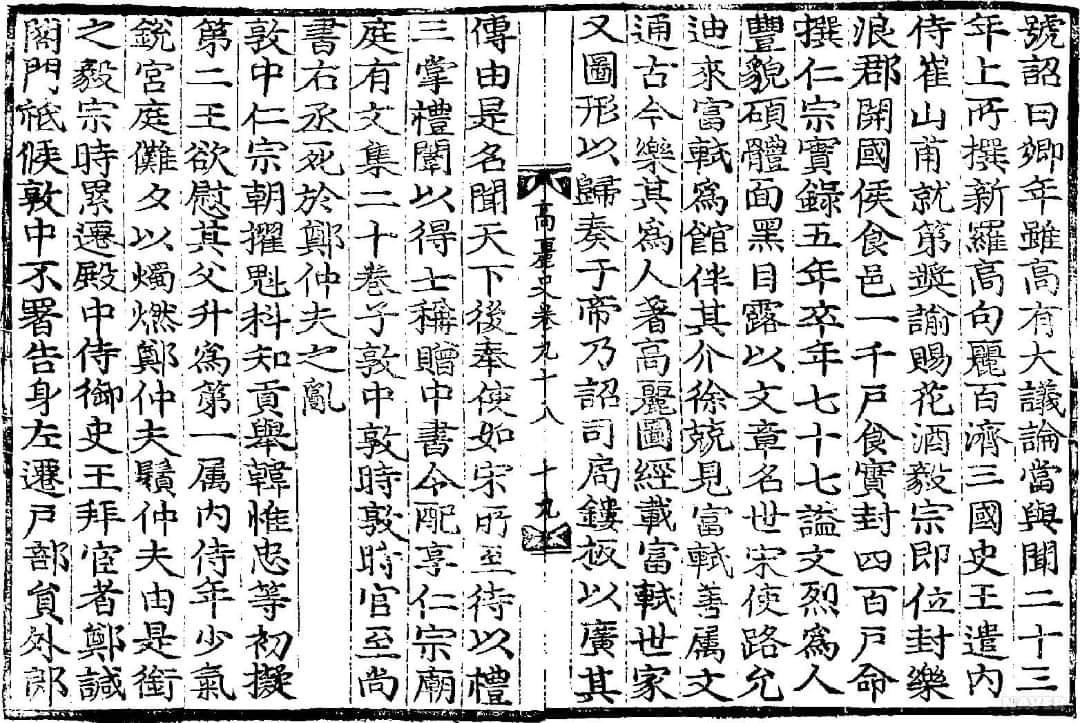 號詔曰卿年雖高有大議論當與聞二十三
年上所撰新羅高句麗百濟三國史王遣內
侍崔山甫就第奬諭賜花酒毅宗即位封樂
浪郡開國侯食邑一千戶食實封四百戶命
撰仁宗實錄五年卒年七十七謚文烈爲人
豐貌碩體面黑目露以文章名世宋使路允
迪來富軾爲館伴其介徐兢見富軾善属文
通古今樂其爲人著高麗圖經載富軾世家
又圖形以歸奏于帝乃詔司局鏤板以廣其
高麗史卷九十八 十九
傳由是名聞天下後奉使如宋所至待以禮
三掌禮闈以得士稱贈中書令配享仁宗廟
庭有文集二十卷子敦中敦時敦時官至尚
書右丞死於鄭仲夫之亂
敦中仁宗朝擢魁科知貢舉韓惟忠等初擬
第二王欲慰其父升爲第一属內侍年少氣
銳宮庭儺夕以燭燃鄭仲夫鬚仲夫由是銜
之毅宗時累遷殿中侍御史王拜宦者鄭諴
閤門祗候敦中不署告身左遷戶部員外郎